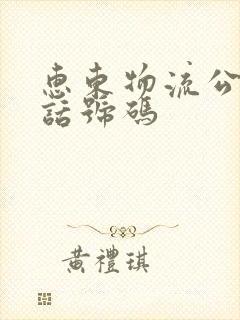 惠東物流公
話號碼
黃禮琪